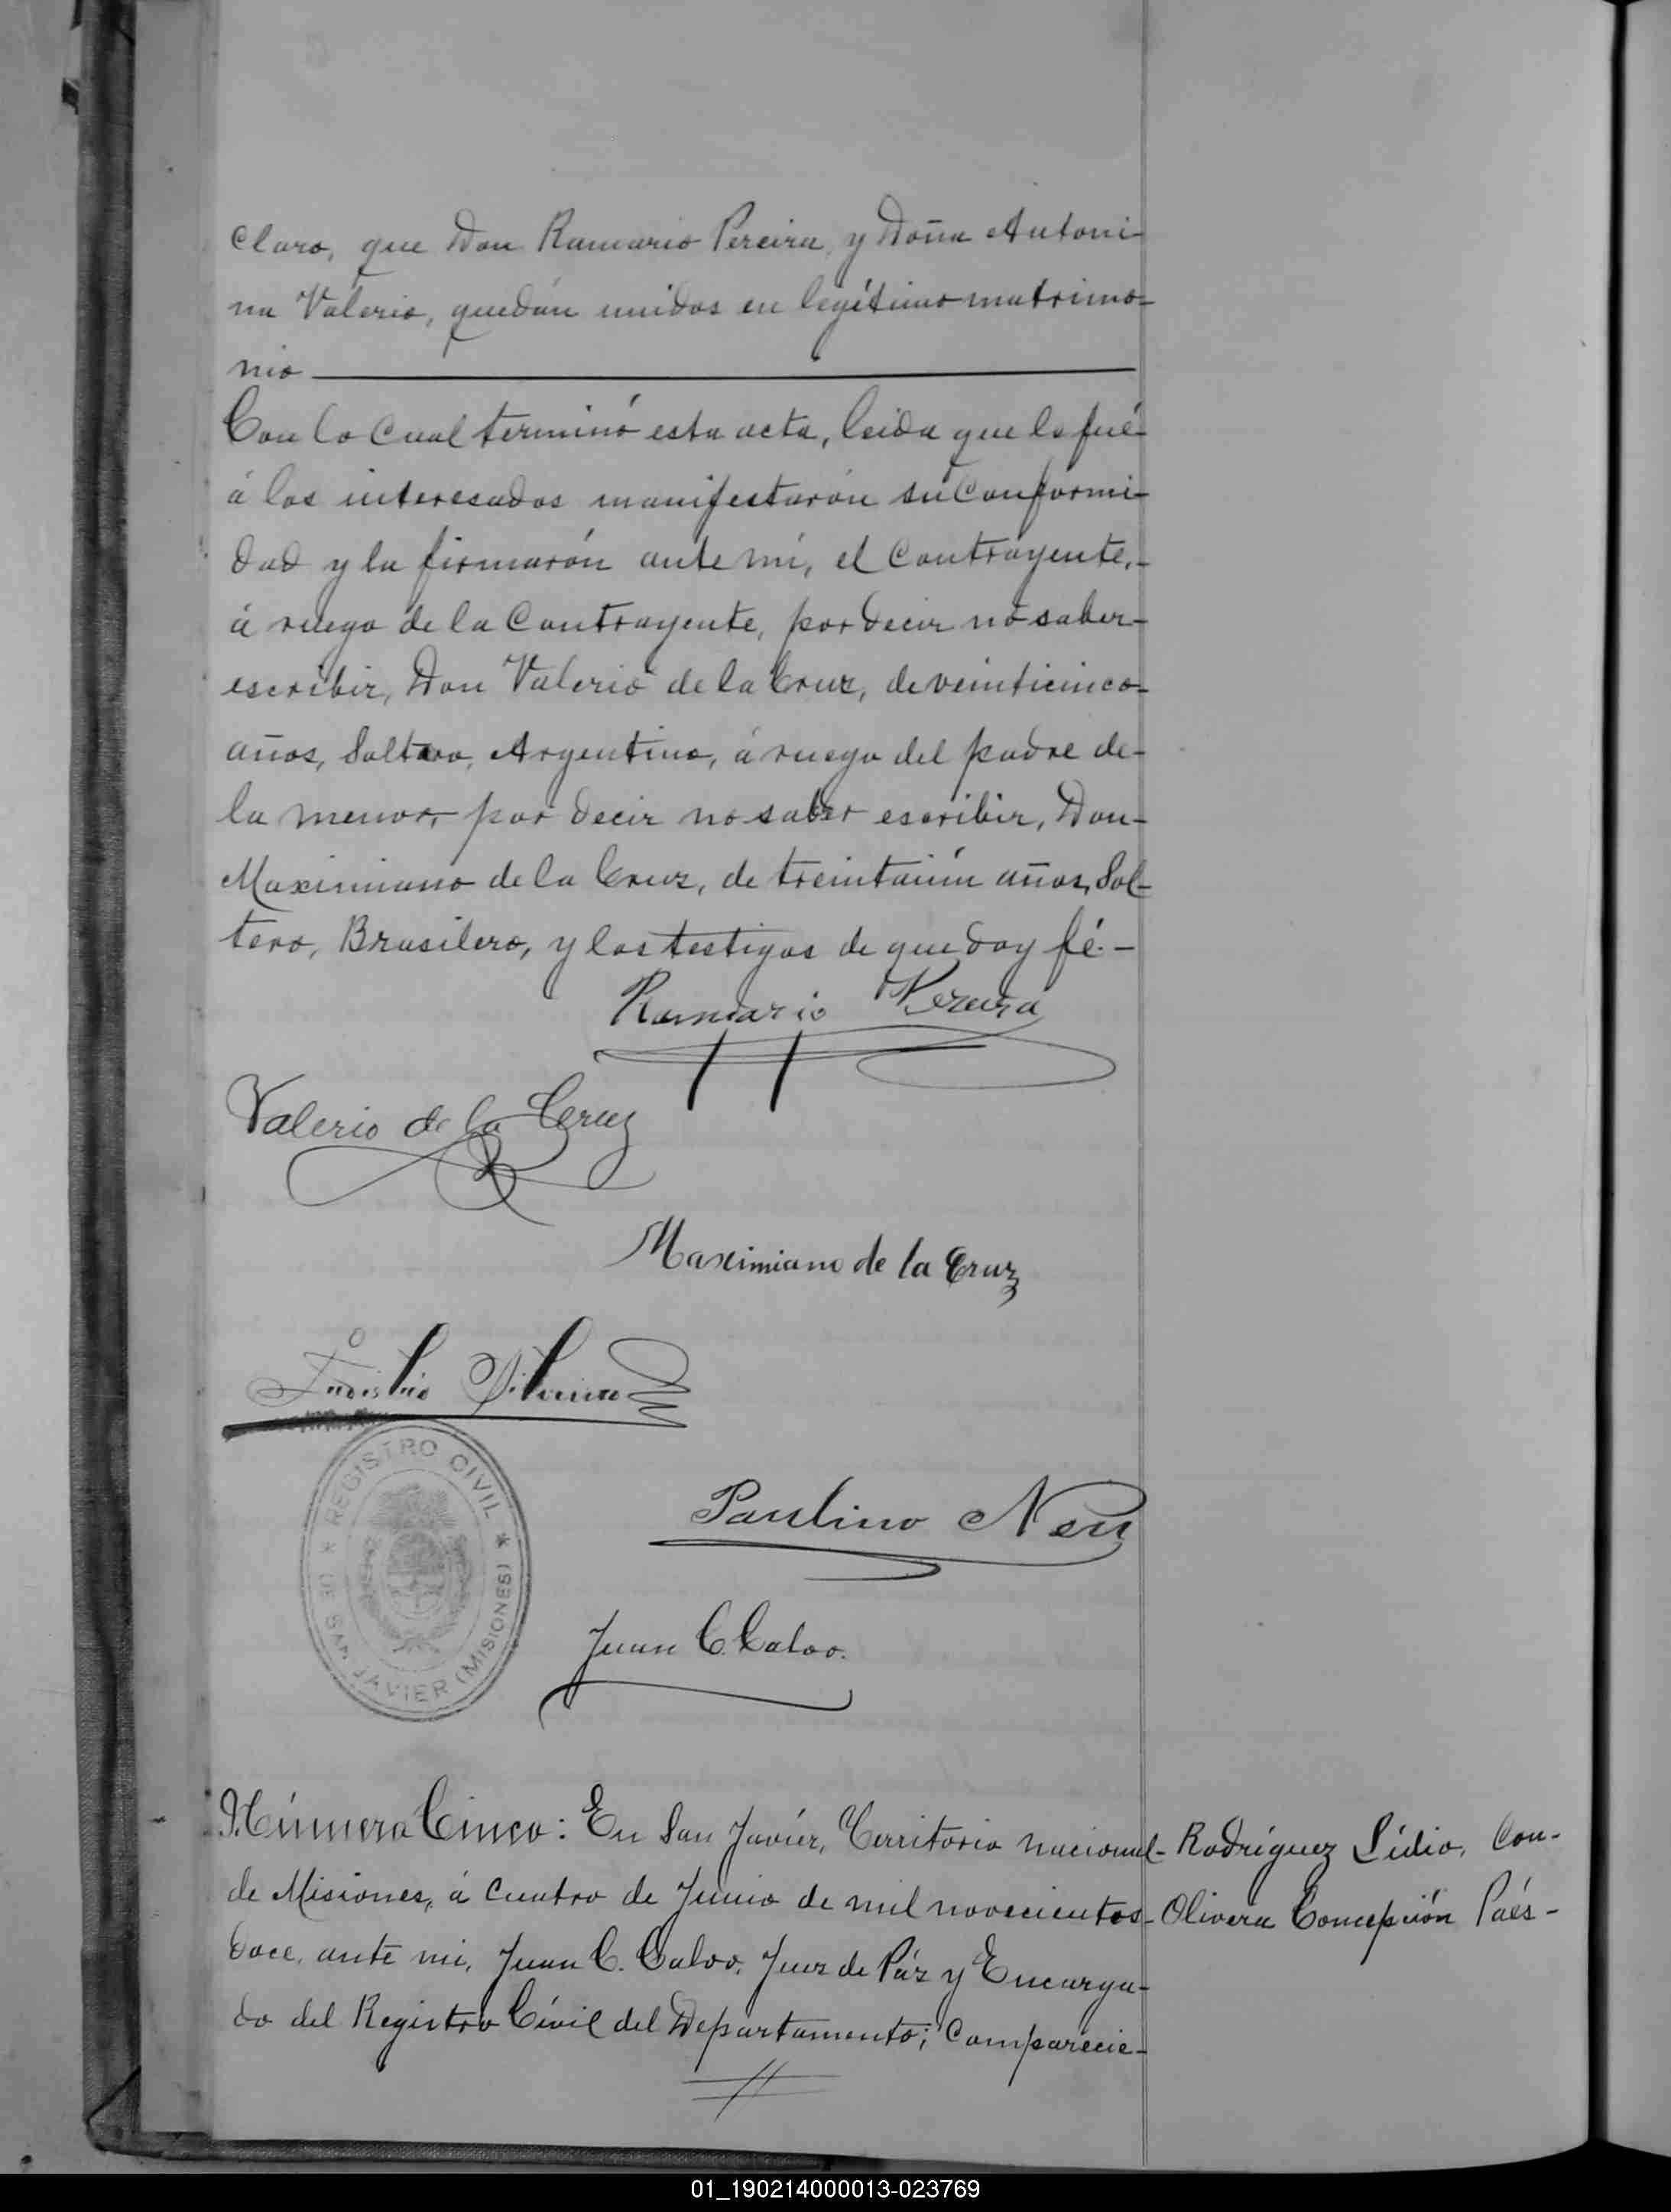 claro, que Don Ramario Pereira, y Doña Antoni-
na Valerio, quedán unidos en legítimo matrimo-
nio
Con lo cual terminó esta acta, leida que le fué
á los interesados manifestarón su conformi-
dad y la firmarón ante mí, el contrayente,-
á ruego de la contrayente, por decir no saber-
escribir, Don Valerio de la Cruz, de veinticinco-
años, Soltero, Argentino, á ruego del padre de-
la menor, por decir no saber escribir, Don-
Maximiano de la Cruz, de treintaiún años, Sol-
tero, Brasilero, y los testigos de que doy fé.-
Ramario Pereira
Valerio de la Cruz
Maximiano de la Cruz
REGISTRO CIVIL
DE SAN JAVIER (MISIONES)
Paulino Neu
Juan C. Calvo.
Número Cinco: En San Javiér, Territorio nacional- Rodríguez Lidio, Con-
de Misiones, á cuatro de Junio de mil novecientos- Olivera Concepción Paés-
doce, ante mi, Juan C. Calvo, Juez de Páz y Encarga-
do del Registro Civil del Departamento; comparecie-
01_190214000013-023769